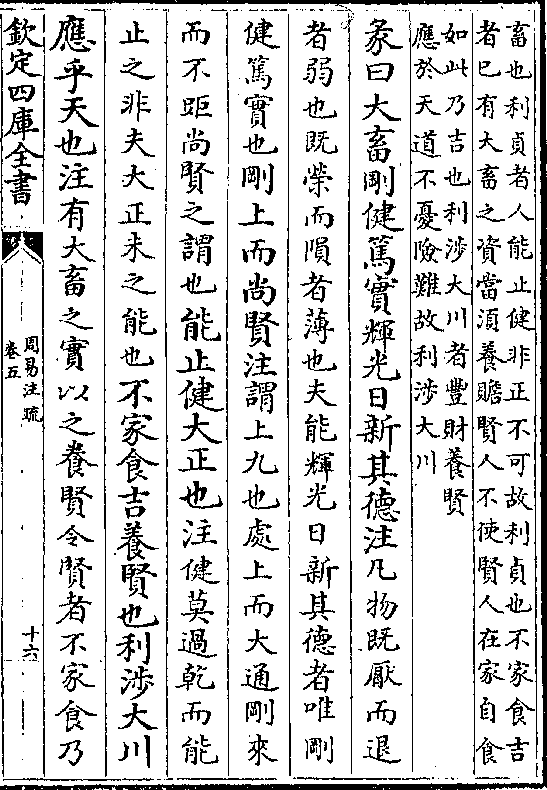 畜也利貞者人能止健非正不可故利貞也不家食吉
者已有大畜之資當須養贍賢人不使賢人在家自食
如此乃吉也利涉大川者豐財養賢
應於天道不憂險難故利涉大川
彖曰大畜剛健篤實輝光日新其德注凡物既厭而退
者弱也既榮而隕者薄也夫能輝光日新其德者唯剛
健篤實也剛上而尚賢注謂上九也處上而大通剛來
而不距尚賢之謂也能止健大正也注健莫過乾而能
止之非夫大正未之能也不家食吉養賢也利涉大川
應乎天也注有大畜之實以之養賢令賢者不家食乃
欽定四庫全書
周易注疏
卷五
十六